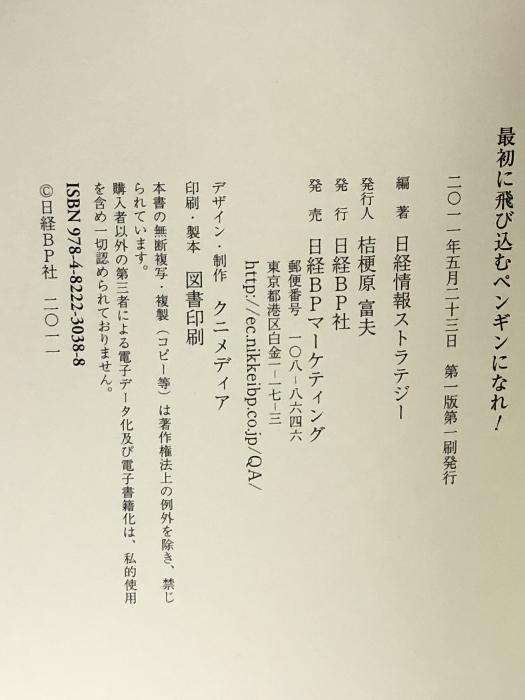 最初に飛び込むペンギンになれ！
二〇一一年五月二十三日　第一版第一刷発行
編　著　日経情報ストラテジー
発行人　桔梗原 富夫
発　行　日経BP社
発　売　日経BPマーケティング
郵便番号　一〇八-八六四六
東京都港区白金一-一七-三
http://ec.nikkeibp.co.jp/QA/
デザイン・制作　クニメディア
印刷・製本　図書印刷
本書の無断複写・複製（コピー等）は著作権法上の例外を除き、禁じ
られています。
購入者以外の第三者による電子データ化及び電子書籍化は、私的使用
を含め一切認められておりません。
ISBN 978-4-8222-3038-8
©日経BP社　二〇一一